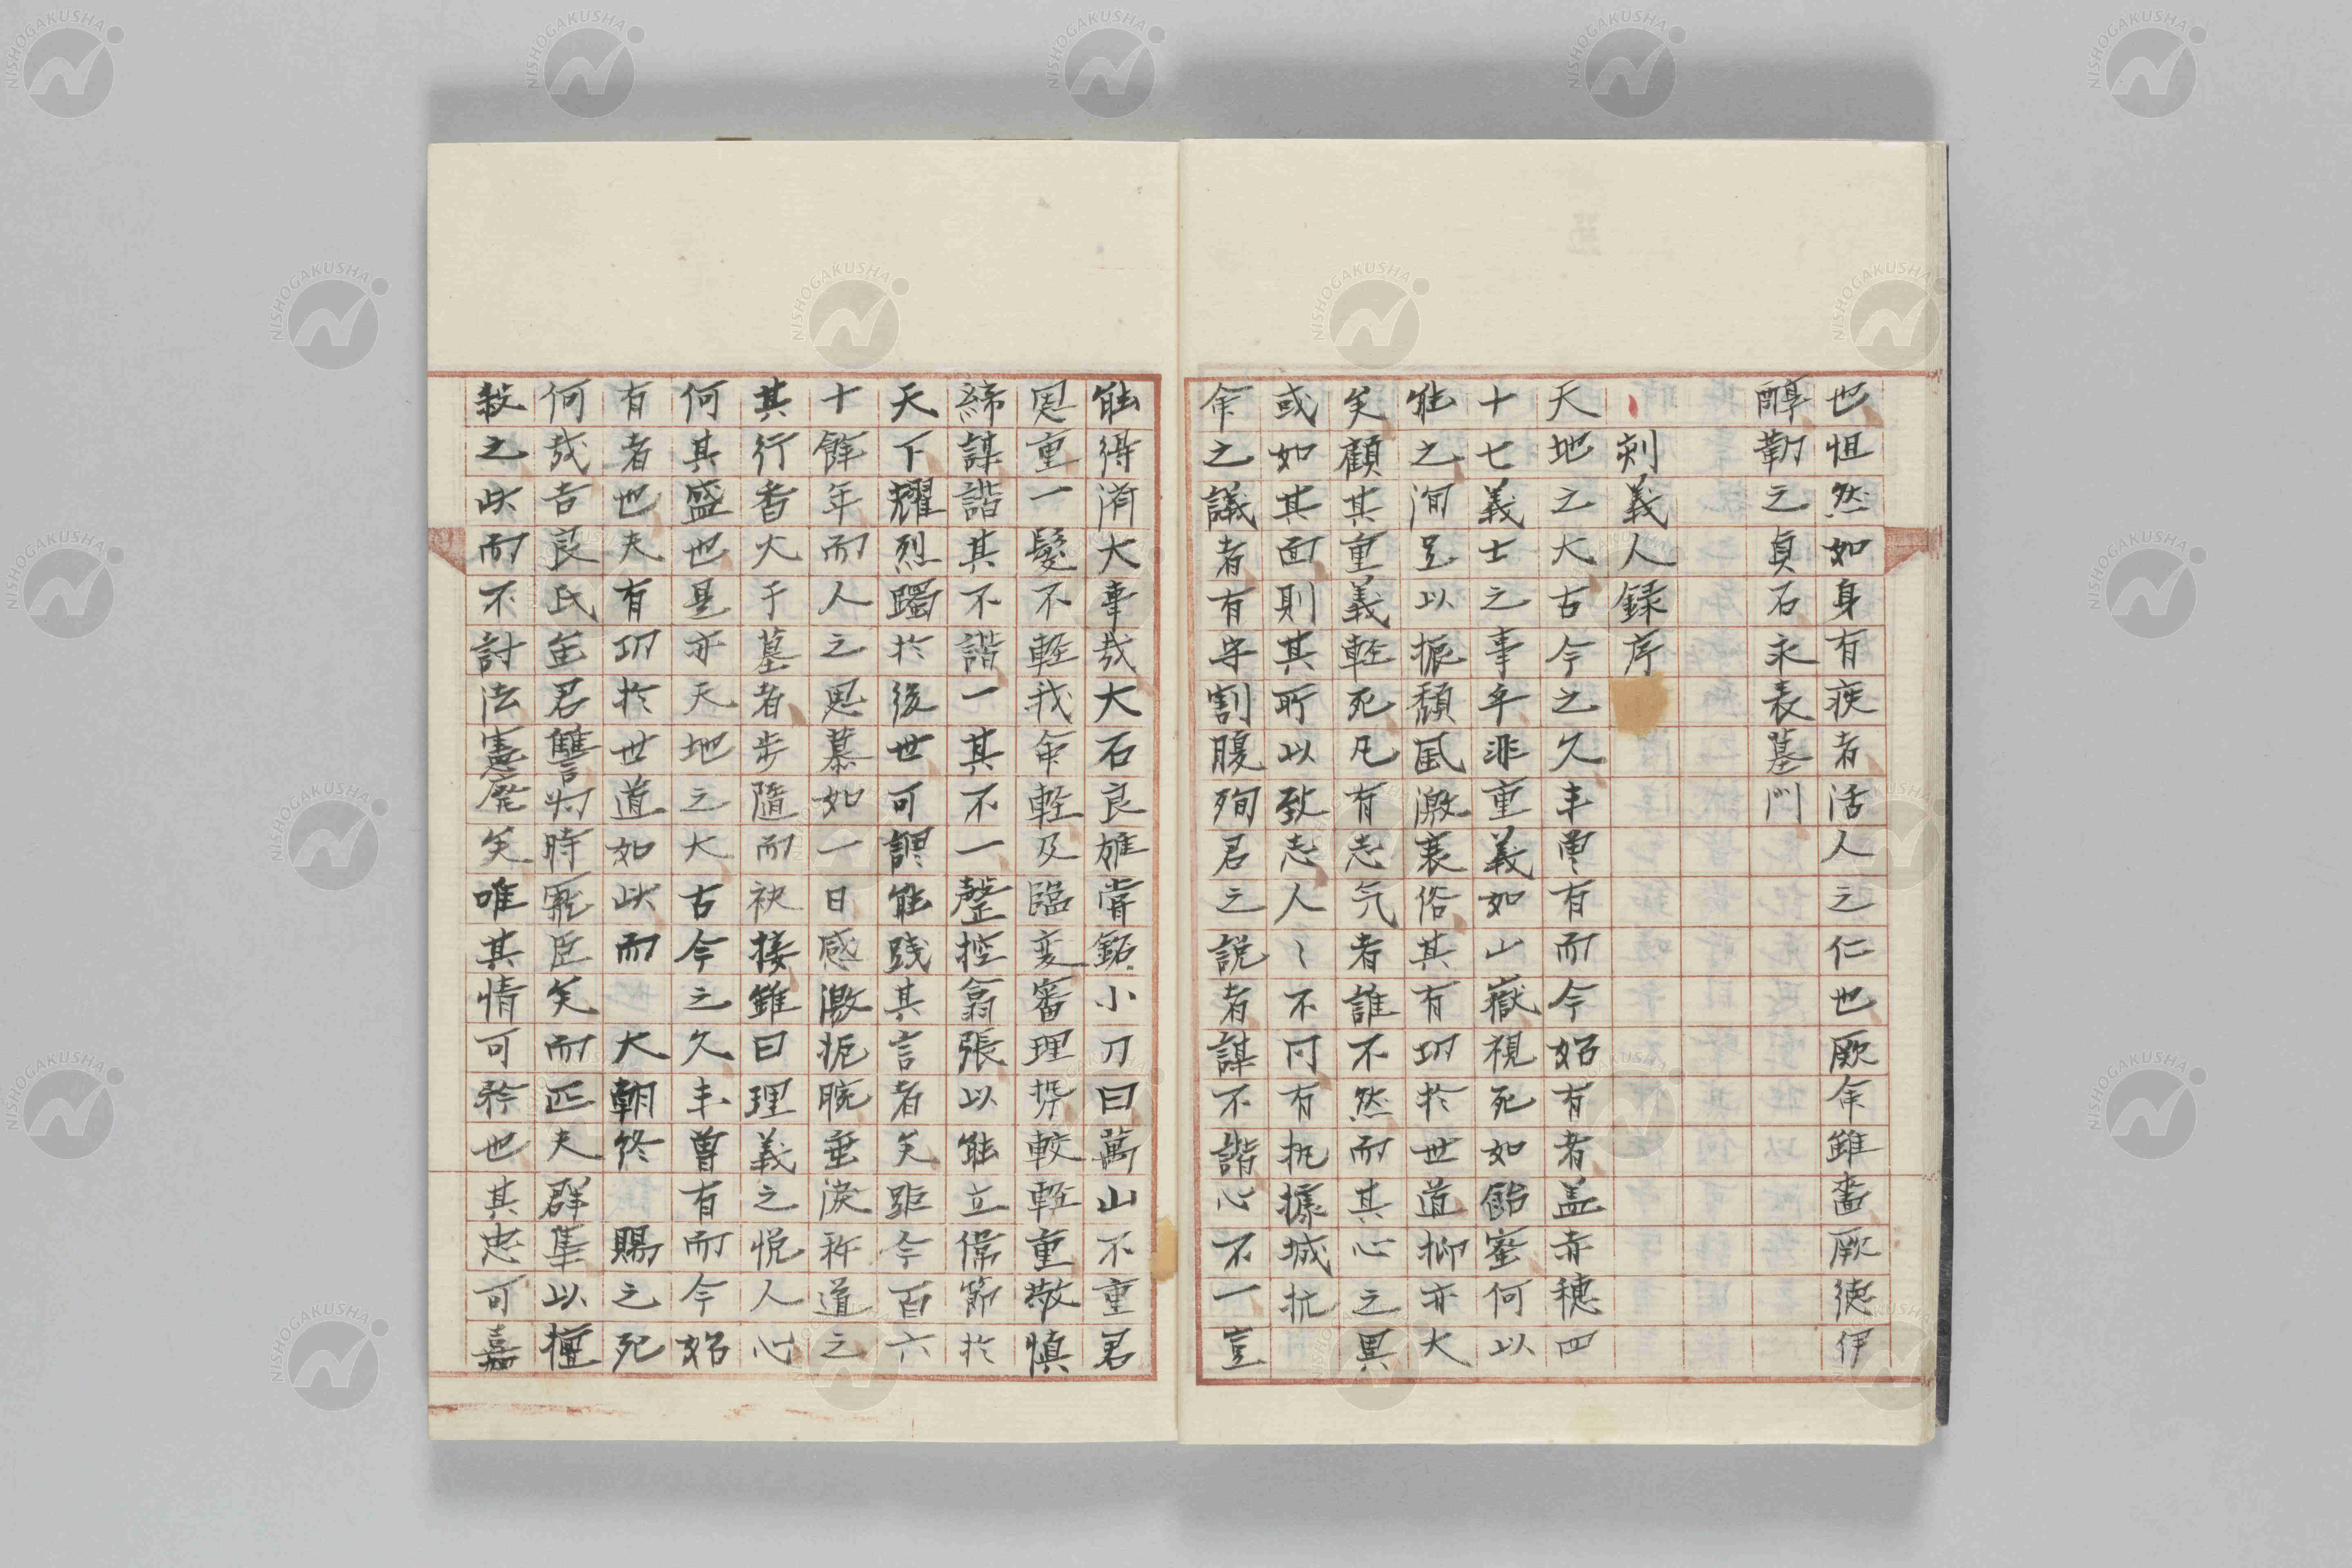 也怛然如身有疾者活人之仁也厥命雖嗇厥徳伊
醇勒之貞石永表墓門
刻義人録序
天地之大古今之久未曽有而今始有者盖赤穂四
十七義士之事乎非重義如山嶽視死如飴蜜何以
能之洵足以振頽風激衰俗其有功於世道抑亦大
矣顧其重義軽死凡有志気者誰不然而其心之異
或如其面則其所以致志人〻不同有扼據城抗
命之議者有守割腹殉君之説者謀不諧心不一豈
能得済大事哉大石良雄嘗銘小刀曰萬山不重君
恩重一髪不軽我命軽及臨変審理揆較軽重敬慎
締謀諧其不諧一其不一罄控翕張以能立偉節於
天下耀烈躅於後世可謂能踐其言者矣距今百六
十餘年而人之思慕如一日感激扼腕垂涙称道之
其行香火于墓者歩隨而袂接雖曰理義之悦人心
何其盛也是亦天地之大古今之久未曽有而今始
有者也夫有功於世道如此而 大朝終賜之死
何哉吉良氏至君讐為時寵臣矣而匹夫群集以擅
殺之此而不討法憲廃矣唯其情可矜也其忠可嘉